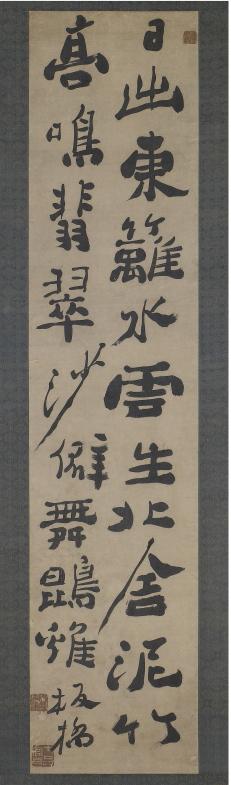 日出東籬水雲生北舍泥竹
高鳴翡翠沙僻舞鵾雞板橋